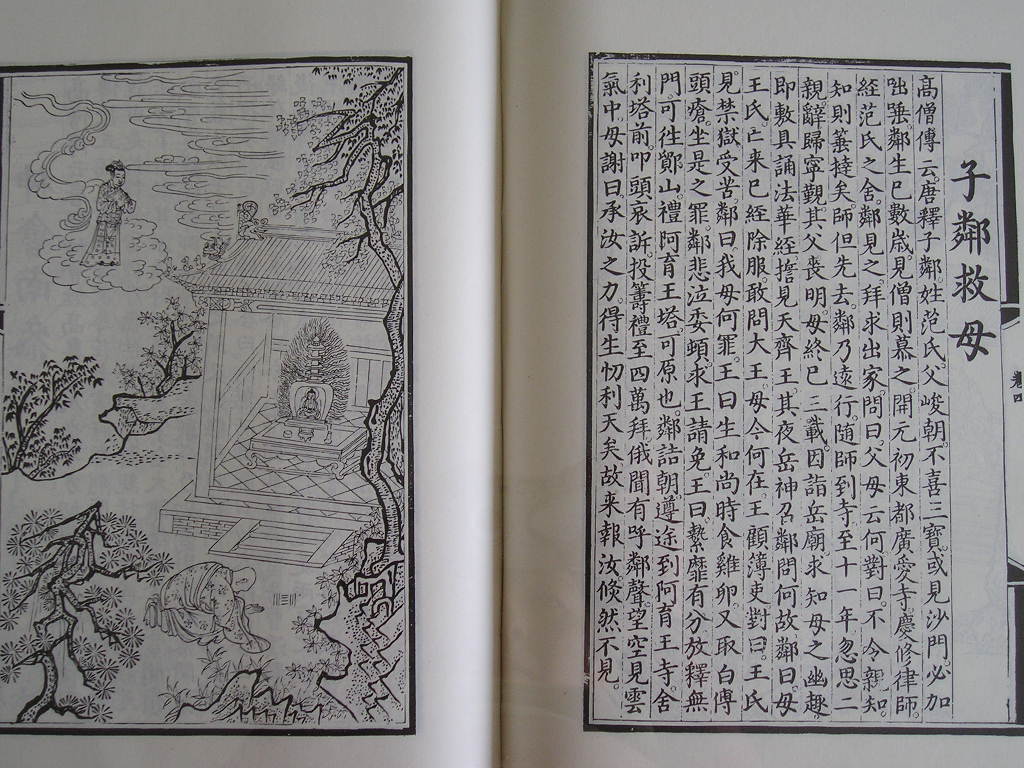 子鄰救母
高僧傳云唐釋子鄰。姓范氏。父峻朝。不喜三寶。或見沙門。必加
咄唾。鄰生已數歲。見僧則慕之。開元初東都廣愛寺慶修律師。
経范氏之舍。鄰見之。拜求出家。問曰。父母云何對曰。不令親知。
知則箠撻矣師但先去。鄰乃遠行。随師到寺。至十一年忽思二
親。辭歸寧覲其父喪明母終已三載。因詣岳廟求知母之幽趣。
即敷具誦法華経。擔見天齊王。其夜岳神召鄰問何故鄰曰母
王氏亡来已経除服敢問大王。母今何在。王顧簿吏對曰。王氏
見禁獄受苦。鄰曰。我母何罪。王曰。生和尚時食雞卵。又取白傅
頭瘡。坐是之罪。鄰悲泣委頓。求王請免。王曰。縶靡有分放釋無
門可往鄮山禮阿育王塔。可原也。鄰詰朝遵途。到阿育王寺。舍
利塔前。叩頭哀訴。投籌禮至四萬拜。俄聞有呼鄰聲。望空見雲
氣中母謝曰。承汝之力。得生忉利天矣。故来報汝。倏然不見。
卷四